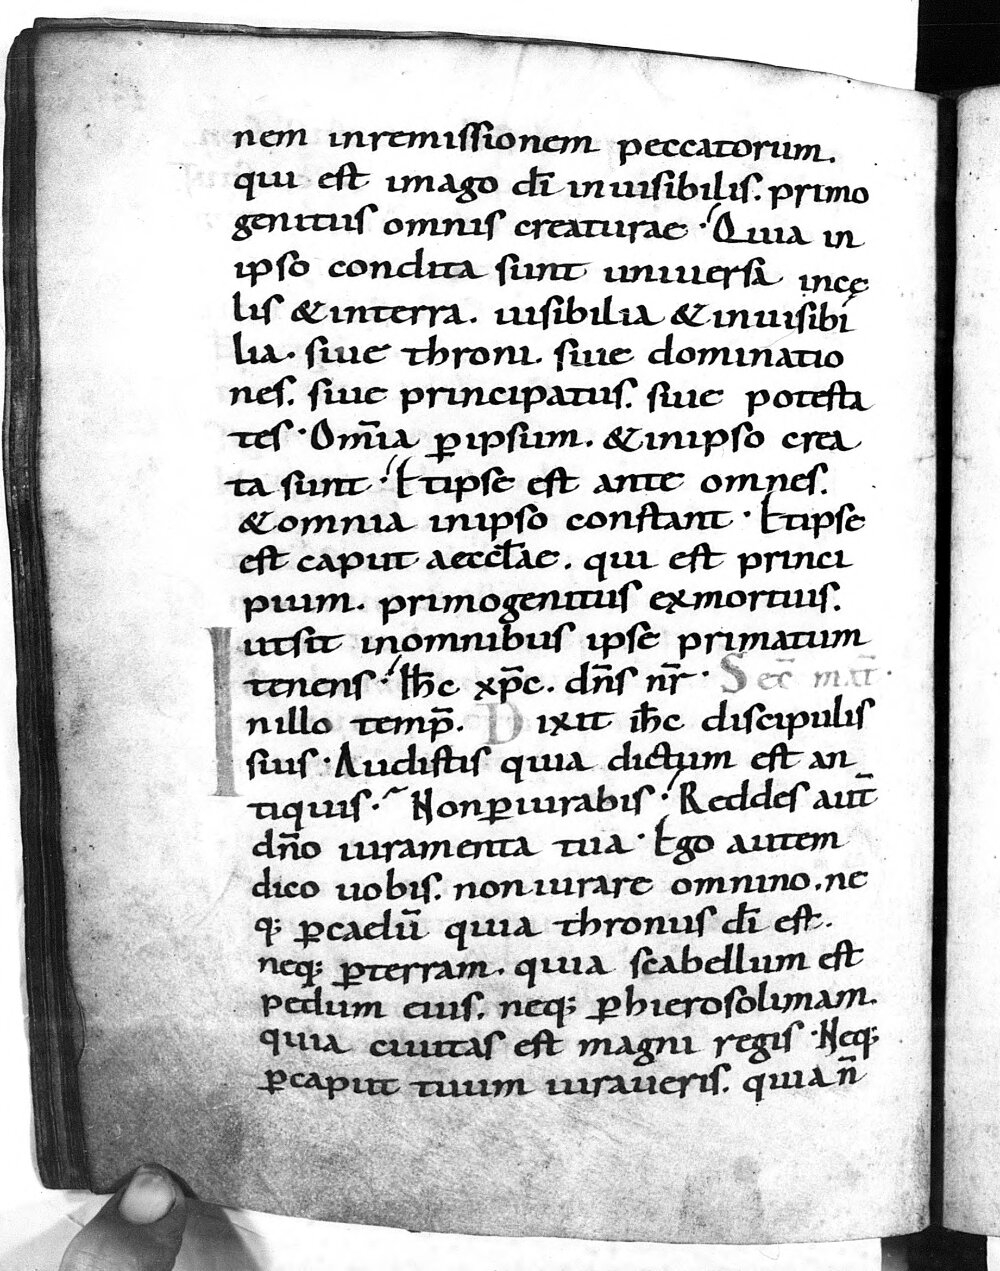 nem inremissionem peccatorum.
qui est imago dī inuisibilis. primo
genitus omnis creaturae · Quia in
ipso condita sunt uniuersa incę
lis &interra. uisibilia & inuisibi
lia. siue throni. siue dominatio
nes. siue principatus. siue potesta
tes · Om̄ia ꝑipsum. &inipso crea
ta sunt · Et ipse est ante omnes.
&omnia inipso constant · Et ipse
est caput aeccƚae. qui est princi
pium. primogenitus exmortuis.
utsit inomnibus ipse primatum
tenens · Ihc xp̄c. dn̄s nr̄ · Sec̄ mat̄t.
Inillo temp̄. Dixit ihc discipulis
suis · Audistis quia dictum est an
tiquis · Nonꝑiurabis · Reddes aut̄
dn̄o iuramenta tua · Ego autem
dico uobis. noniurare omnino. ne
q; ꝑcaelū quia thronus dī est.
neq; ꝑterram. quia scabellum est
pedum eius. neq; ꝑhierosolimam.
quia ciuitas est magni regis · Neq;
ꝑcaput tuum iuraueris. quia n̄